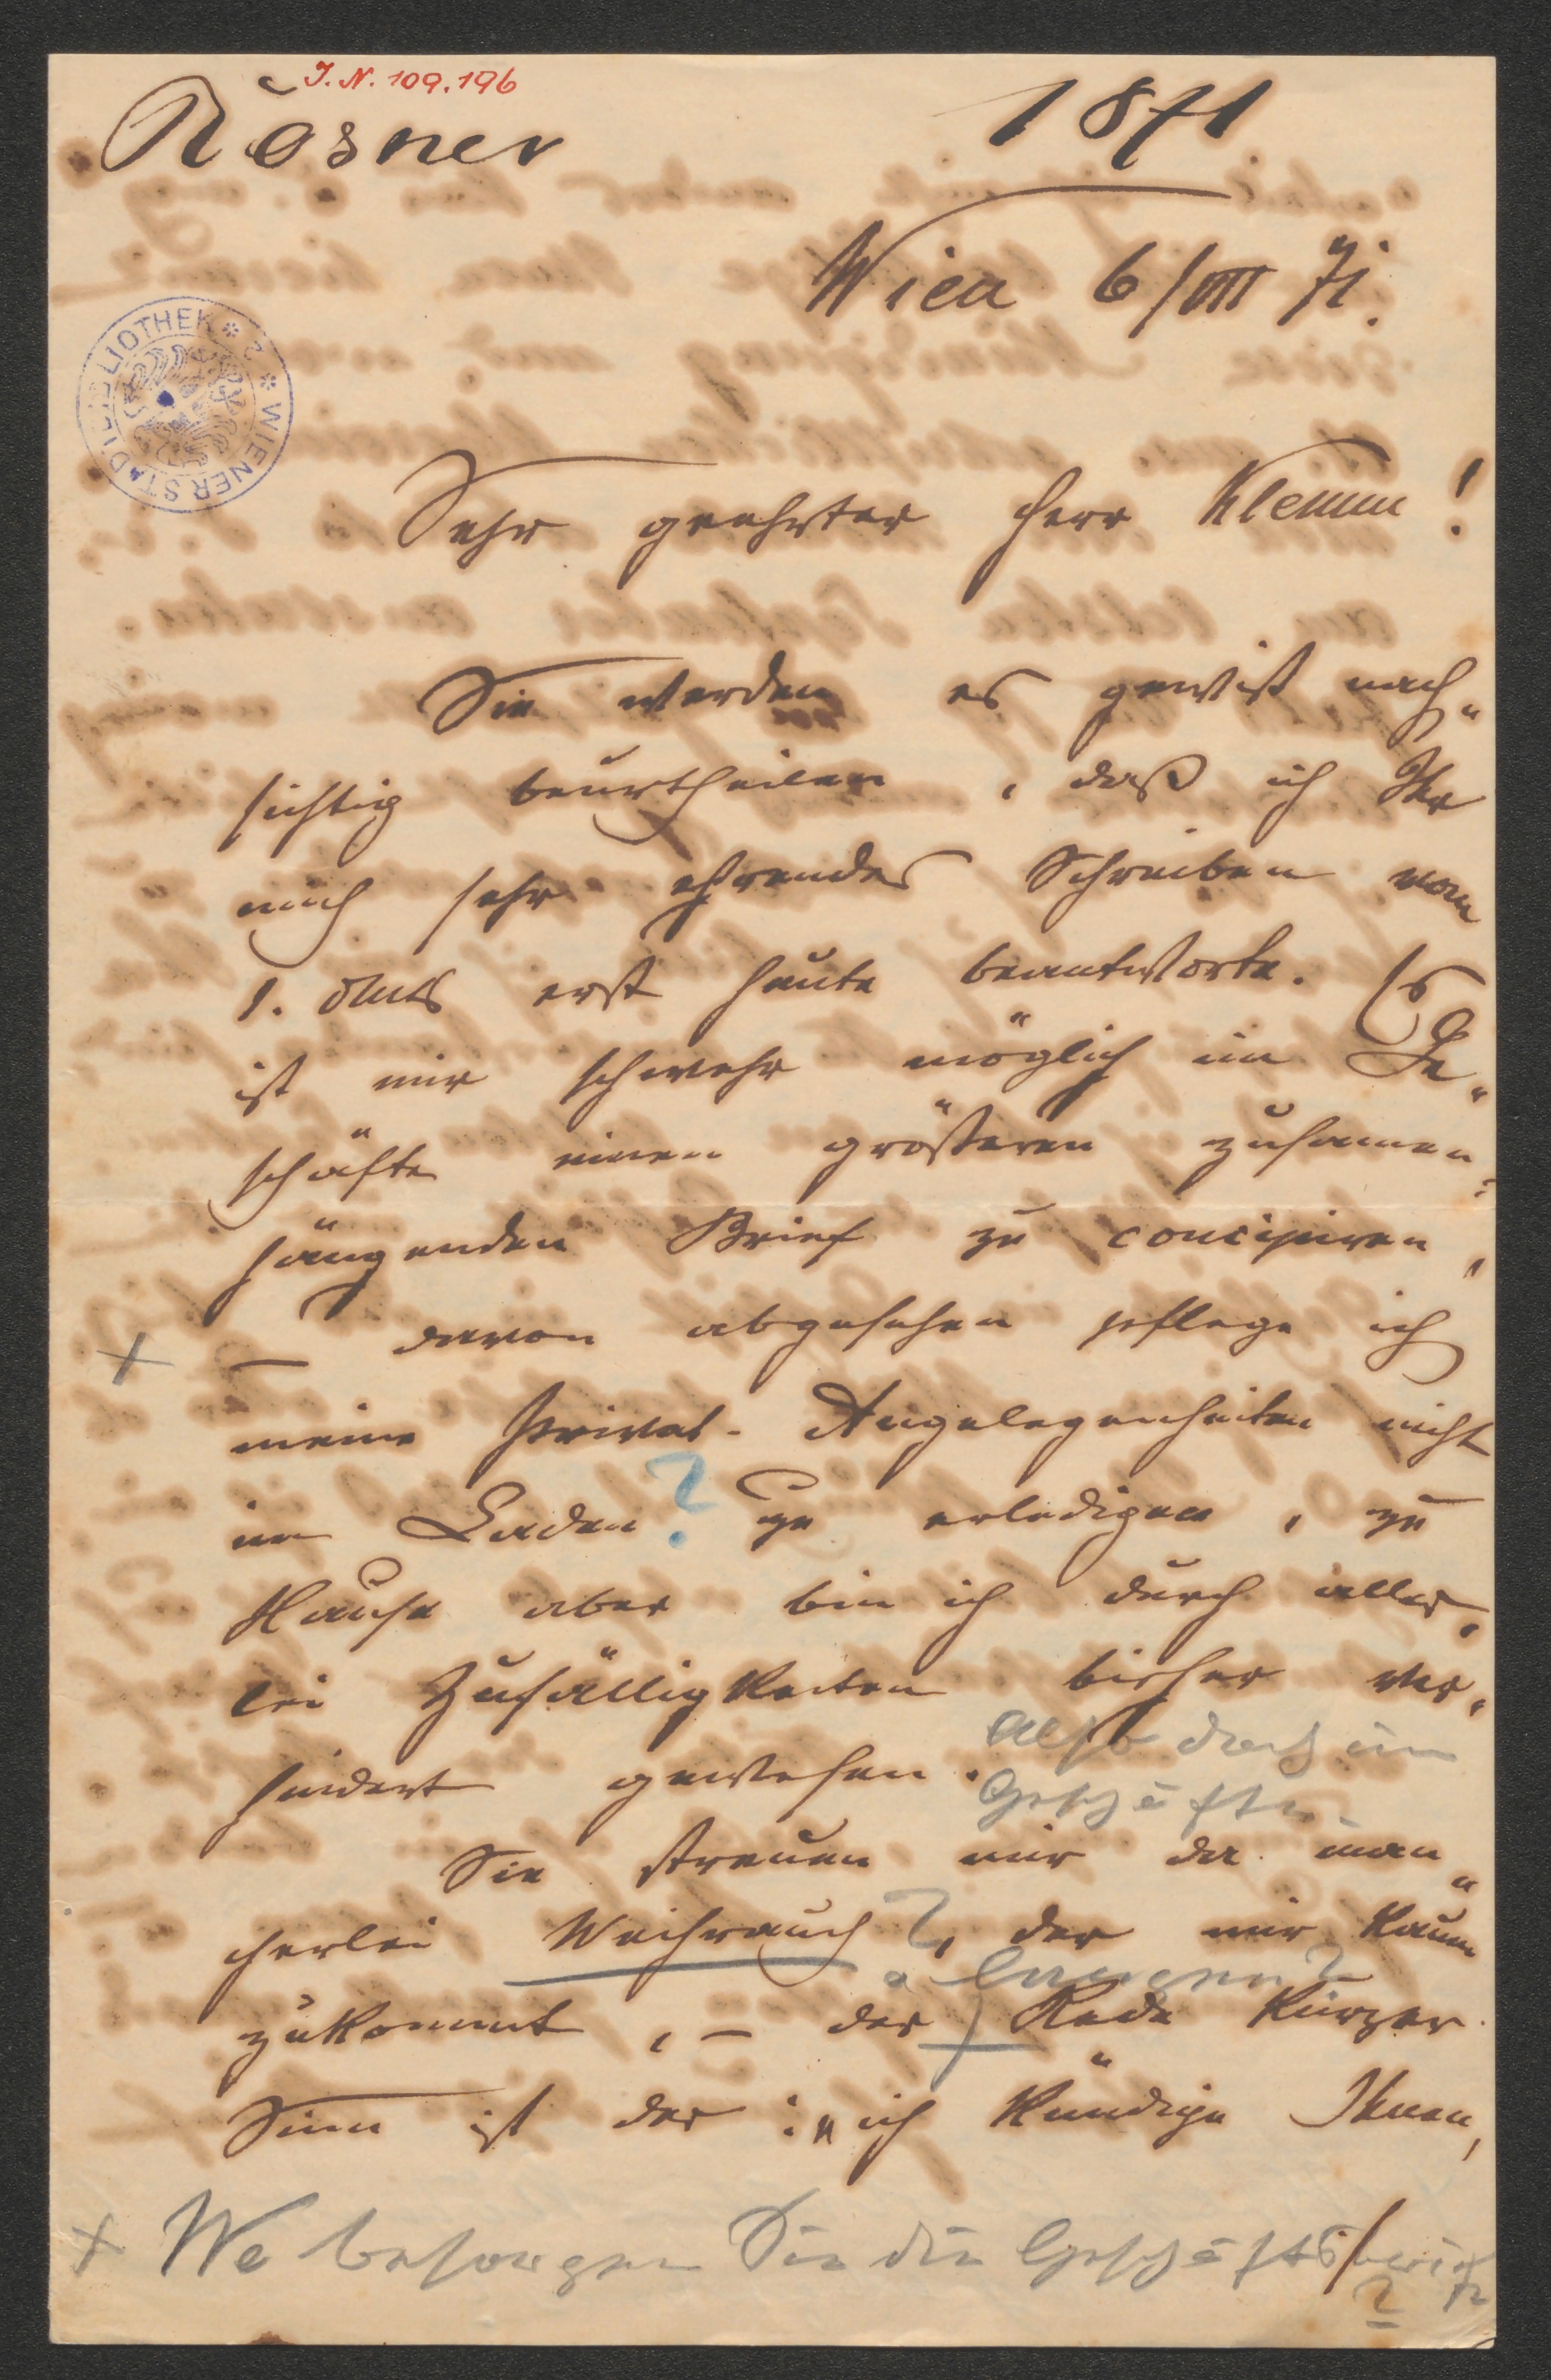 J. N. 109.196
Rosner
1871
Wien 6/VIII 71.
WIENER STADTBIBLIOTHEK
Sehr geehrter Herr Klemm!
Sie werden es gewiß nach„
sichtig beurtheilen, daß ich Ihr
mich sehr ehrendes Schreiben vom
1. dMts erst heute beantworte. Es
ist mir schwehr möglich im Ge„
schäfte einen größeren zusamen„
hängenden Brief zu concipiren,
+ – davon abgesehen pflege ich
meine Privat-Angelegenheiten nicht
im Laden ? zu erledigen, zu
Hause aber bin ich durch aller„
lei Zufälligkeiten bisher ver„
hindert gewesen.
Also doch im
Geschäfte.
Sie streuen mir da man„
cherlei Weihrauch ?, der mir kaum
zukommt, – der langen? Rede kurzer
Sinn ist der: „ich kündige Ihnen,
+ Wo besorgen Sie die Geschäftsbriefe
?